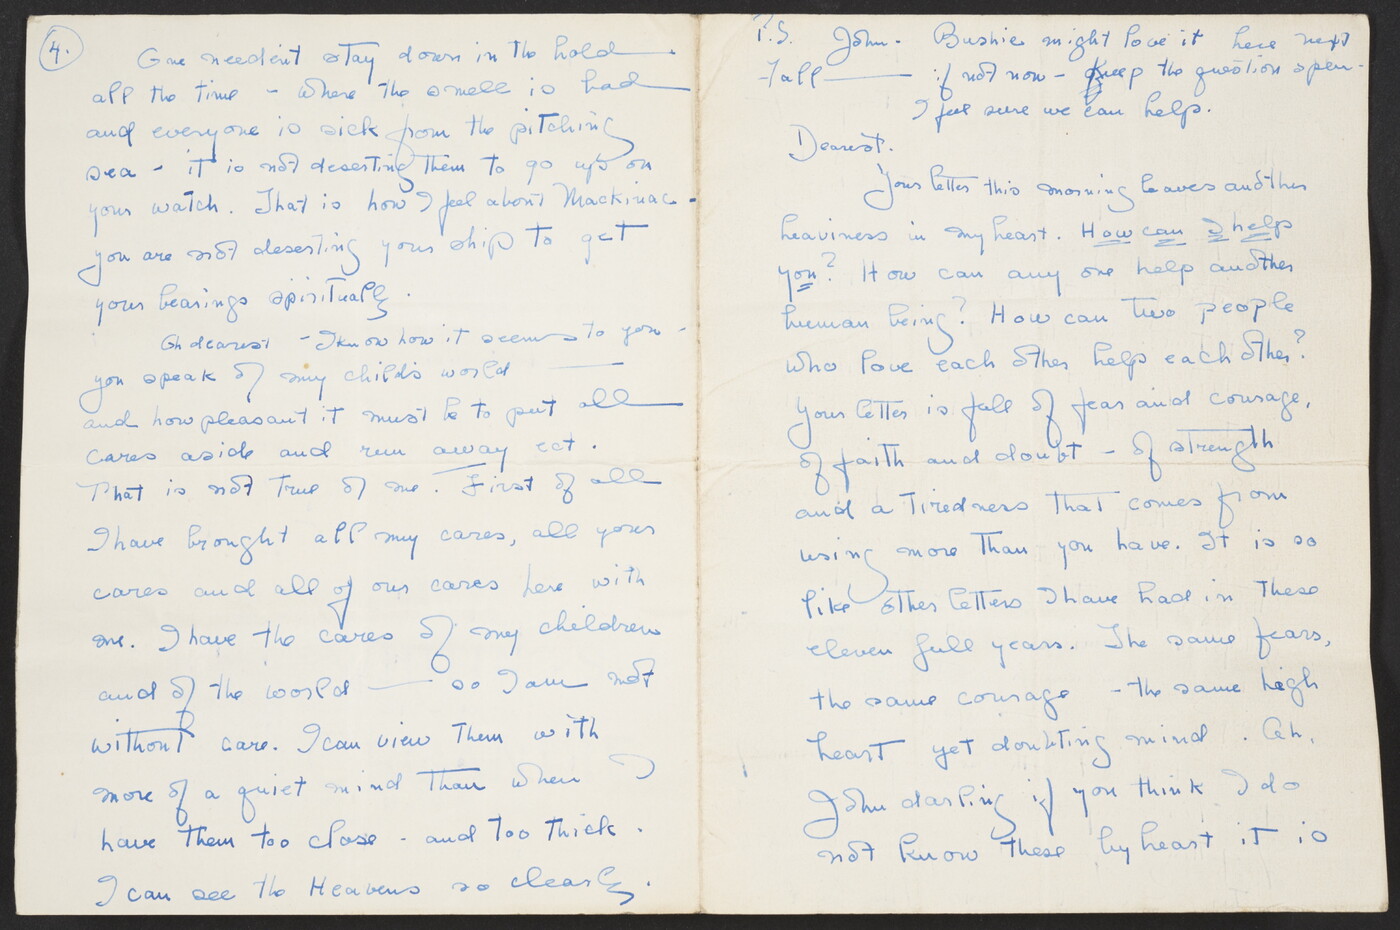 4.
One needent stay down in the hold
all the time - where the smell is bad
and everyone is sick from the pitching
sea - it is not deserting them to go up on
your watch. That is how I feel about Mackinac -
you are not deserting your ship to get
your bearings spiritually.
Oh dearest - I know how it seems to you -
you speak of my child's world —
and how pleasant it must be to put all
cares aside and run away ect.
That is not true of me. First of all
I have brought all my cares, all your
cares and all of our cares here with
me. I have the cares of my children
and of the world — so I am not
without care. I can view them with
more of a quiet mind than when I
have them too close - and too thick.
I can see the Heavens so clearly.
P.S. John - Bushie might love it here next
Fall — if not now - keep the question open -
I feel sure we can help.
Dearest.
Your letter this morning leaves another
heaviness in my heart. How can I help
you? How can any one help another
human being? How can two people
who love each other help each other?
Your letter is full of fear and courage,
of faith and doubt - of strength
and a tiredness that comes from
using more than you have. It is so
like other letters I have had in these
eleven full years. The same fears,
the same courage - the same high
heart yet doubting mind. Oh,
John darling if you think I do
not know these by heart it is